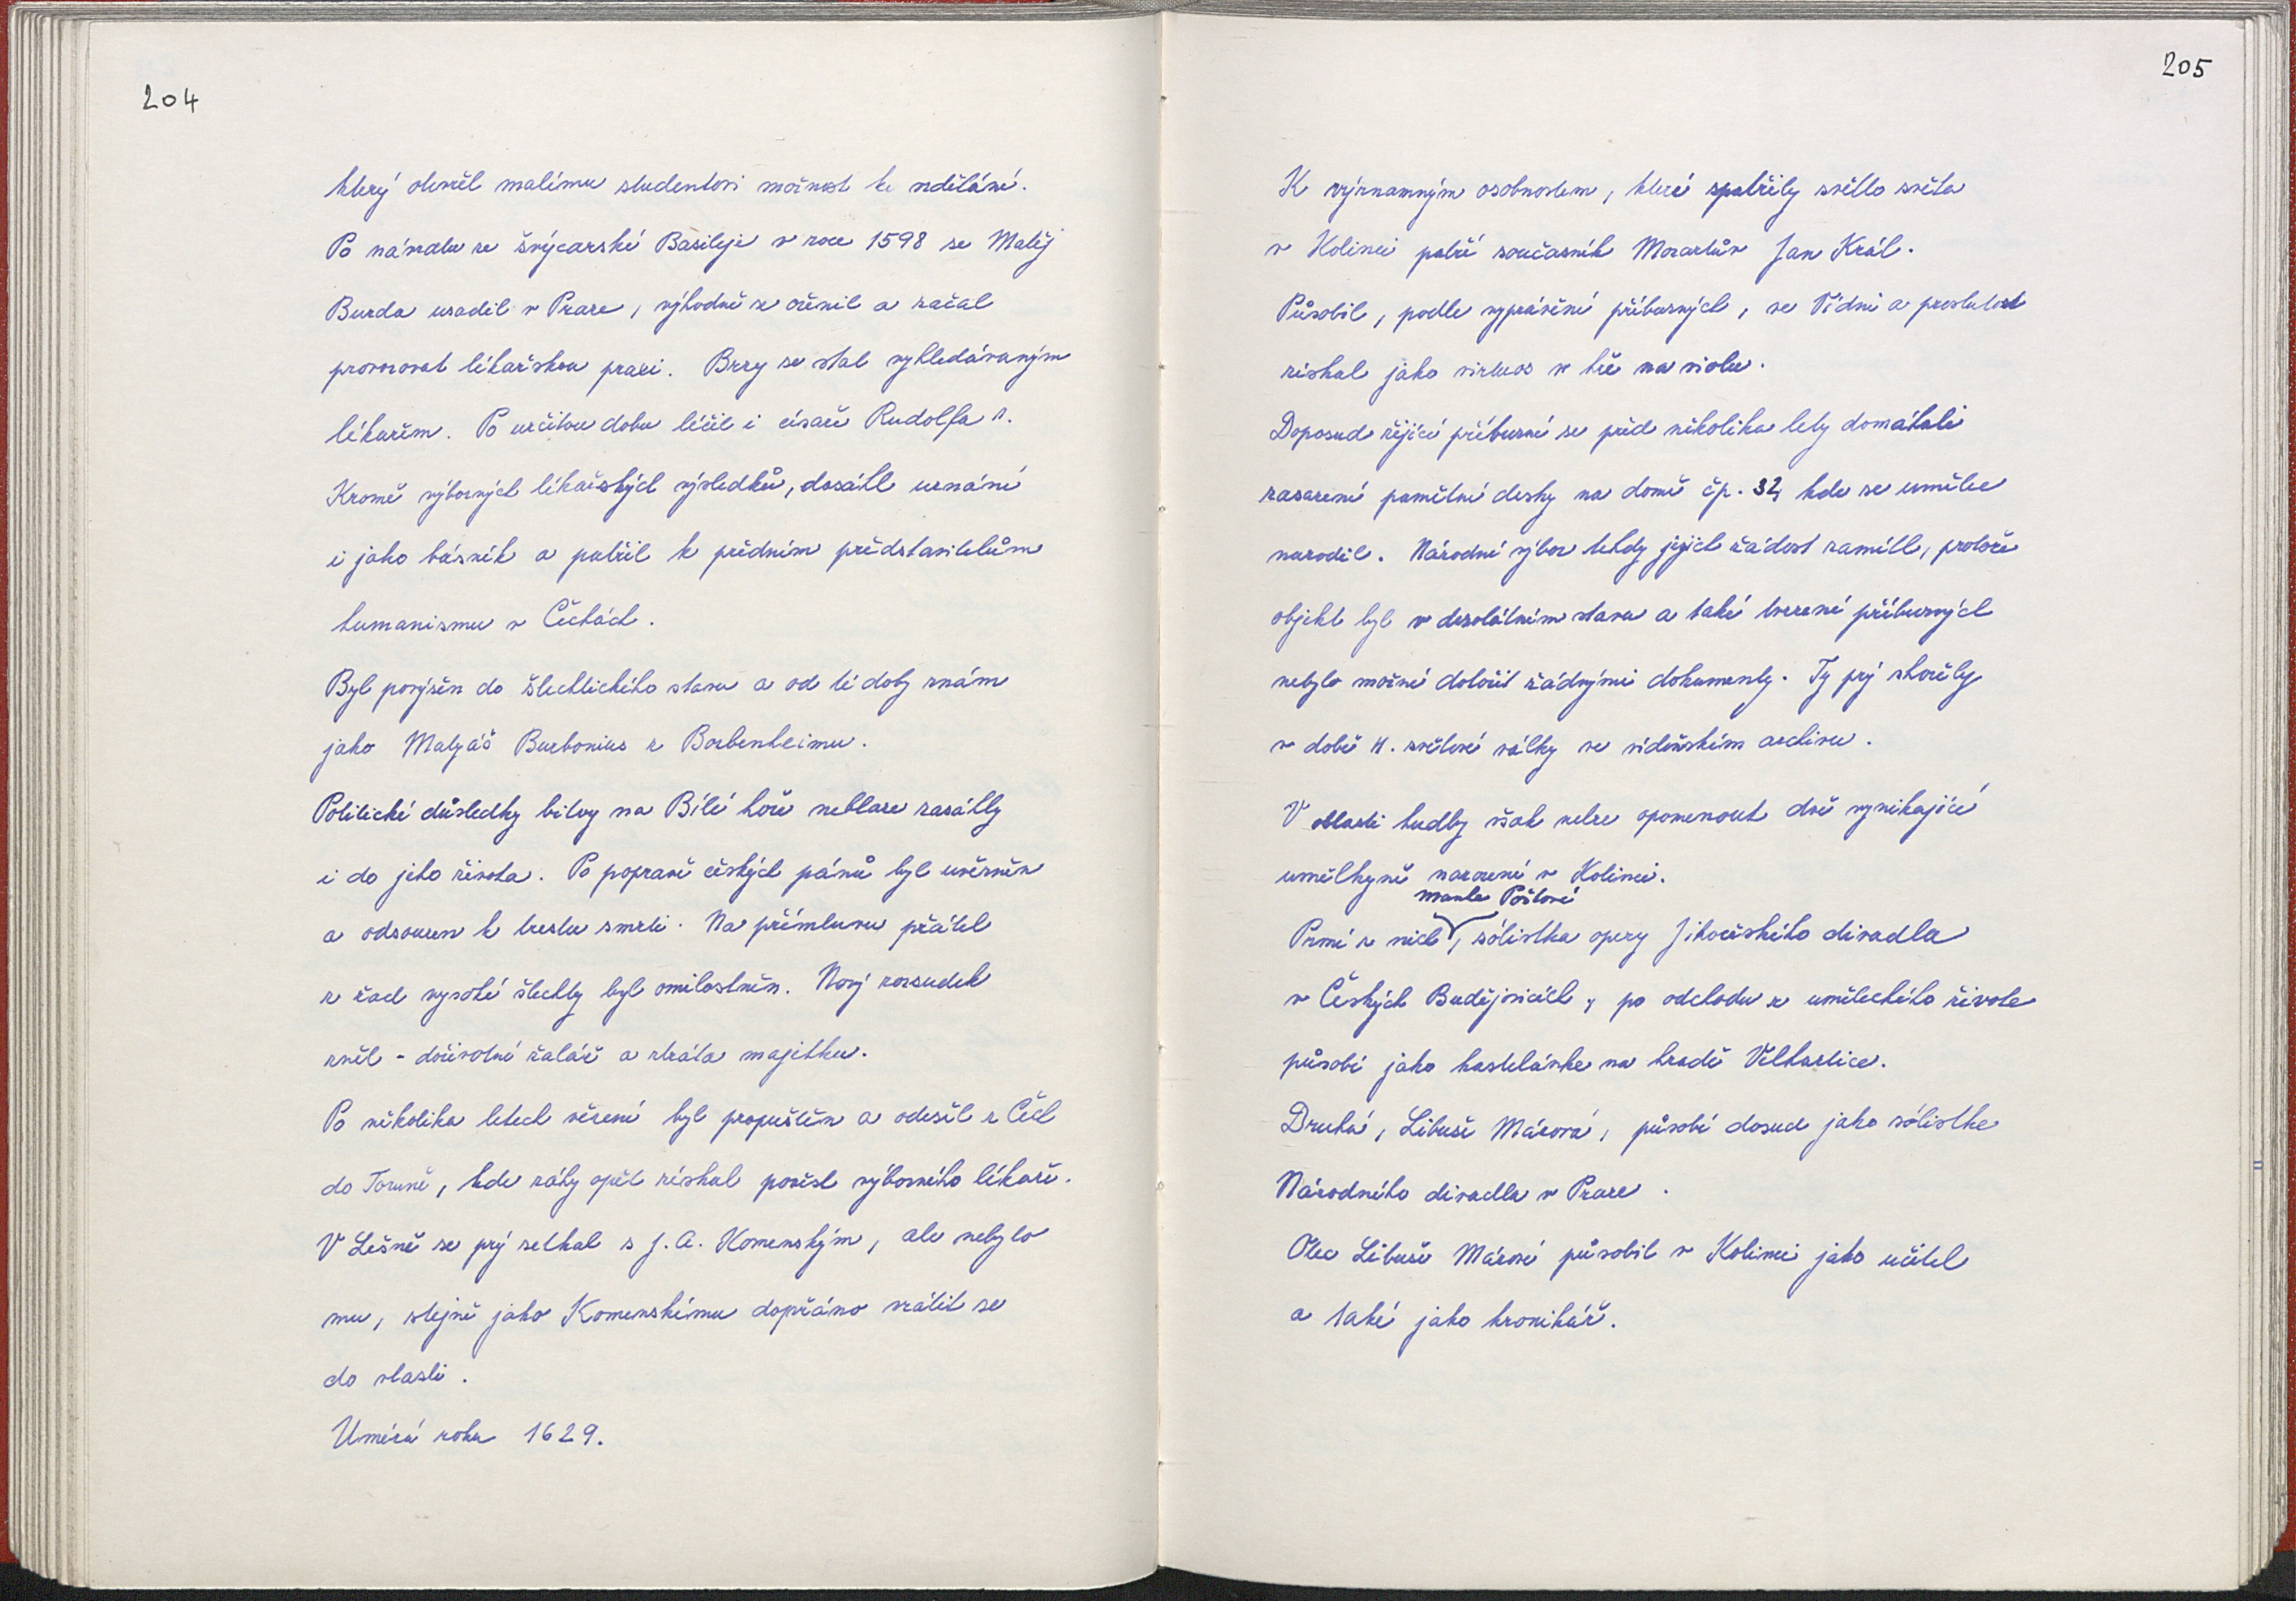 204
který otevřel malému studentovi možnost ke vzdělání.
Po návratu ze švýcarské Basileje v roce 1598 se Matěj
Burda usadil v Praze, výhodně se oženil a začal
provozovat lékařskou praxi. Brzy se stal vyhledávaným
lékařem. Po určitou dobu léčil i císaře Rudolfa II.
Kromě výborných lékařských výsledků, dosáhl uznání
i jako básník a patřil k předním představitelům
humanismu v Čechách.
Byl povýšen do šlechtického stavu a od té doby znám
jako Matyáš Burbonius z Borbenheimu.
Politické důsledky bitvy na Bílé hoře neblaze zasáhly
i do jeho života. Po popravě českých pánů byl uvězněn
a odsouzen k trestu smrti. Na přímluvu přátel
z řad vysoké šlechty byl omilostněn. Nový rozsudek
zněl - doživotní žalář a ztráta majetku.
Po několika letech vězení byl propuštěn a odešel z Čech
do Toruně, kde záhy opět získal pověst výborného lékaře.
V Lešně se prý setkal s J. A. Komenským, ale nebylo
mu, stejně jako Komenskému dopřáno vrátit se
do vlasti.
Umírá roku 1629.
205
K významným osobnostem, které spatřily světlo světa
v Kolinci patří současník Mozartův Jan Král.
Působil, podle vyprávění příbuzných, ve Vídni a proslulost
získal jako virtuos ve hře na violu.
Doposud žijící příbuzní se před několika lety domáhali
zasazení pamětní desky na domě čp. 32, kde se umělec
narodil. Národní výbor tehdy jejich žádost zamítl, protože
objekt byl v desolátním stavu a také tvrzení příbuzných
nebylo možné doložit žádnými dokumenty. Ty prý shořely
v době II. světové války ve vídeňském archivu.
V oblasti hudby však nelze opomenout dvě vynikající
umělkyně narozené v Kolinci.
Poštové
První z nich, sólistka opery Jihočeského divadla
v Českých Budějovicích, po odchodu z uměleckého života
působí jako kastelánka na hradě Velhartice.
Druhá, Libuše Márová, působí dosud jako sólistka
Národního divadla v Praze.
Otec Libuše Márové působil v Kolinci jako učitel
a také jako kronikář.